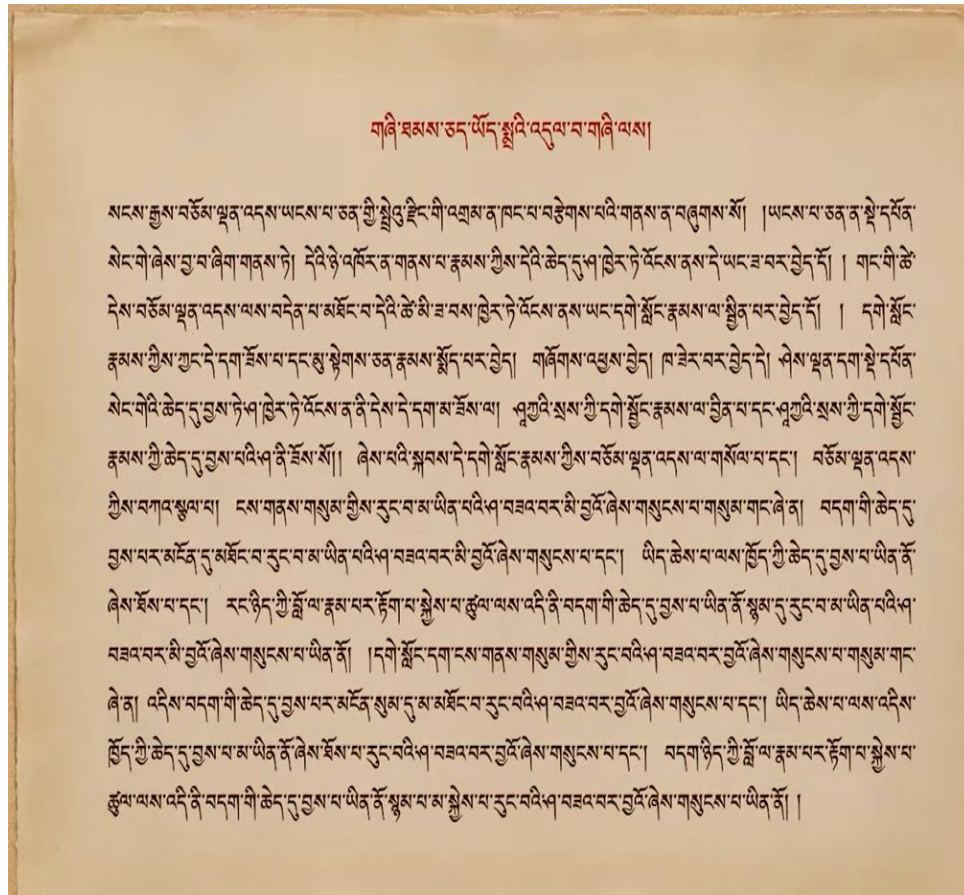 གཞི་ཐམས་ཅད་ཡོད་སྨྲའི་འདུལ་བ་གཞི་ལས།
སངས་རྒྱས་བཅོམ་ལྡན་འདས་ཡངས་པ་ཅན་གྱི་སྤྲེའུ་རྫིང་གི་འགྲམ་ན་ཁང་པ་བརྩེགས་པའི་གནས་ན་བཞུགས་སོ། །ཡངས་པ་ཅན་ན་སྡེ་དཔོན་
སེང་གེ་ཞེས་བྱ་བ་ཞིག་གནས་ཏེ། དེའི་ཉེ་འཁོར་ན་གནས་པ་རྣམས་ཀྱིས་དེའི་ཆེད་དུ་ཤ་ཁྱེར་ཏེ་འོངས་ནས་དེ་ཡང་ཟ་བར་བྱེད་དོ། ། གང་གི་ཚེ་
དེས་བཅོམ་ལྡན་འདས་ལས་བདེན་པ་མཐོང་བ་དེའི་ཚེ་མི་ཟ་བས་ཁྱེར་ཏེ་འོངས་ནས་ཡང་དགེ་སློང་རྣམས་ལ་སྦྱིན་པར་བྱེད་དོ། ། དགེ་སློང་
རྣམས་ཀྱིས་ཀྱང་དེ་དག་ཟོས་པ་དང་མུ་སྟེགས་ཅན་རྣམས་སྨོད་པར་བྱེད། གཞོགས་འཕྱས་བྱེད། ཁ་ཟེར་བར་བྱེད་དེ། ཤེས་ལྡན་དག་སྡེ་དཔོན་
སེང་གེའི་ཆེད་དུ་བྱས་ཏེ་ཤ་ཁྱེར་ཏེ་འོངས་ན་ནི་དེས་དེ་དག་མ་ཟོས་ལ། ཤཱཀྱའི་སྲས་ཀྱི་དགེ་སྦྱོང་རྣམས་ལ་བྱིན་པ་དང་ཤཱཀྱའི་སྲས་ཀྱི་དགེ་སྦྱོང་
རྣམས་ཀྱི་ཆེད་དུ་བྱས་པའི་ཤ་ནི་ཟོས་སོ།། ཞེས་པའི་སྐབས་དེ་དགེ་སློང་རྣམས་ཀྱིས་བཅོམ་ལྡན་འདས་ལ་གསོལ་པ་དང་། བཅོམ་ལྡན་འདས་
ཀྱིས་བཀའ་སྩལ་པ། ངས་གནས་གསུམ་གྱིས་རུང་བ་མ་ཡིན་པའི་ཤ་བཟའ་བར་མི་བྱའོ་ཞེས་གསུངས་པ་གསུམ་གང་ཞེ་ན། བདག་གི་ཆེད་དུ་
བྱས་པར་མངོན་དུ་མཐོང་བ་རུང་བ་མ་ཡིན་པའི་ཤ་བཟའ་བར་མི་བྱའོ་ཞེས་གསུངས་པ་དང་། ཡིད་ཆེས་པ་ལས་ཁྱོད་ཀྱི་ཆེད་དུ་བྱས་པ་ཡིན་ནོ་
ཞེས་ཐོས་པ་དང་། རང་ཉིད་ཀྱི་བློ་ལ་རྣམ་པར་རྟོག་པ་སྐྱེས་པ་ཚུལ་ལས་འདི་ནི་བདག་གི་ཆེད་དུ་བྱས་པ་ཡིན་ནོ་སྙམ་དུ་རུང་བ་མ་ཡིན་པའི་ཤ་
བཟའ་བར་མི་བྱའོ་ཞེས་གསུངས་པ་ཡིན་ནོ། །དགེ་སློང་དག་ངས་གནས་གསུམ་གྱིས་རུང་བའི་ཤ་བཟའ་བར་བྱའོ་ཞེས་གསུངས་པ་གསུམ་གང་
ཞེ་ན། འདིས་བདག་གི་ཆེད་དུ་བྱས་པར་མངོན་སུམ་དུ་མ་མཐོང་བ་རུང་བའི་ཤ་བཟའ་བར་བྱའོ་ཞེས་གསུངས་པ་དང་། ཡིད་ཆེས་པ་ལས་འདིས་
ཁྱོད་ཀྱི་ཆེད་དུ་བྱས་པ་མ་ཡིན་ནོ་ཞེས་ཐོས་པ་རུང་བའི་ཤ་བཟའ་བར་བྱའོ་ཞེས་གསུངས་པ་དང་། བདག་ཉིད་ཀྱི་བློ་ལ་རྣམ་པར་རྟོག་པ་སྐྱེས་པ་
ཚུལ་ལས་འདི་ནི་བདག་གི་ཆེད་དུ་བྱས་པ་ཡིན་ནོ་སྙམ་པ་མ་སྐྱེས་པ་རུང་བའི་ཤ་བཟའ་བར་བྱའོ་ཞེས་གསུངས་པ་ཡིན་ནོ། །